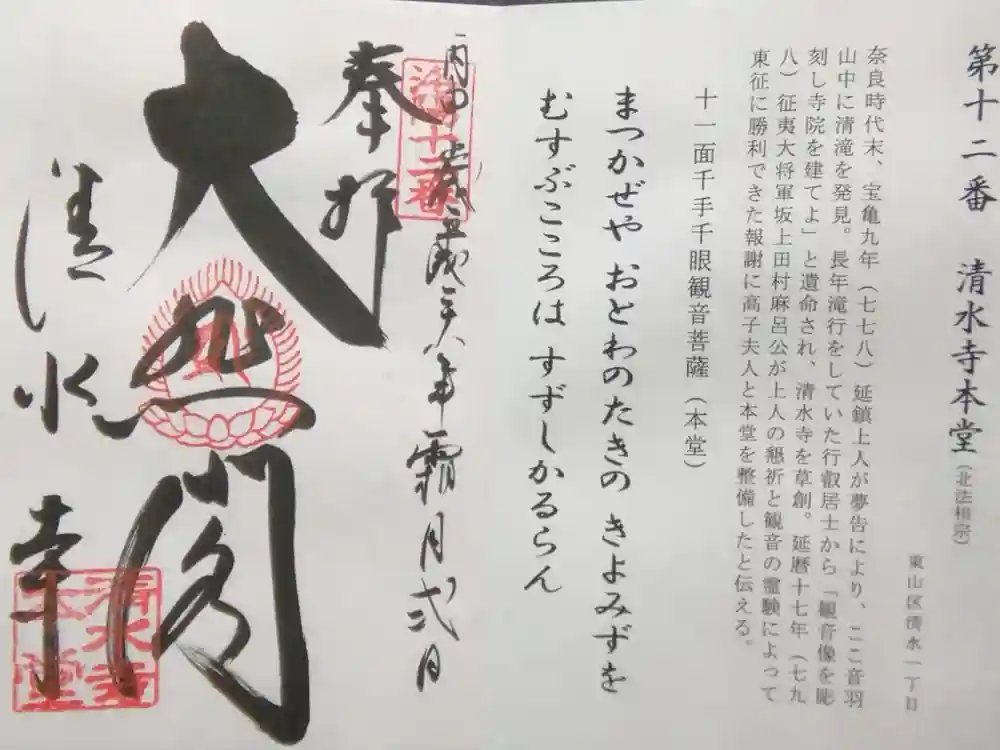 第十二番 清水寺本堂(北法相宗)
東山区清水一丁目
奈良時代末、宝亀九年(七七八)延鎮上人が夢告により、ここ音羽
山中に清滝を発見。長年滝行をしていた行叡居士から「観音像を彫
刻し寺院を建てよ」と遺命され、清水寺を草創。延暦十七年(七九
八)征夷大将軍坂上田村麻呂公が上人の懇祈と観音の霊験によって
東征に勝利できた報謝に高子夫人と本堂を整備したと伝える。
十一面千手千眼観音菩薩(本堂)
まつかぜや おとわのたきの きよみずを
むすぶこころは すずしかるらん
丙申歳平成二十八年霜月弐日
奉拝
大悲閣
清水寺
清水寺
本堂